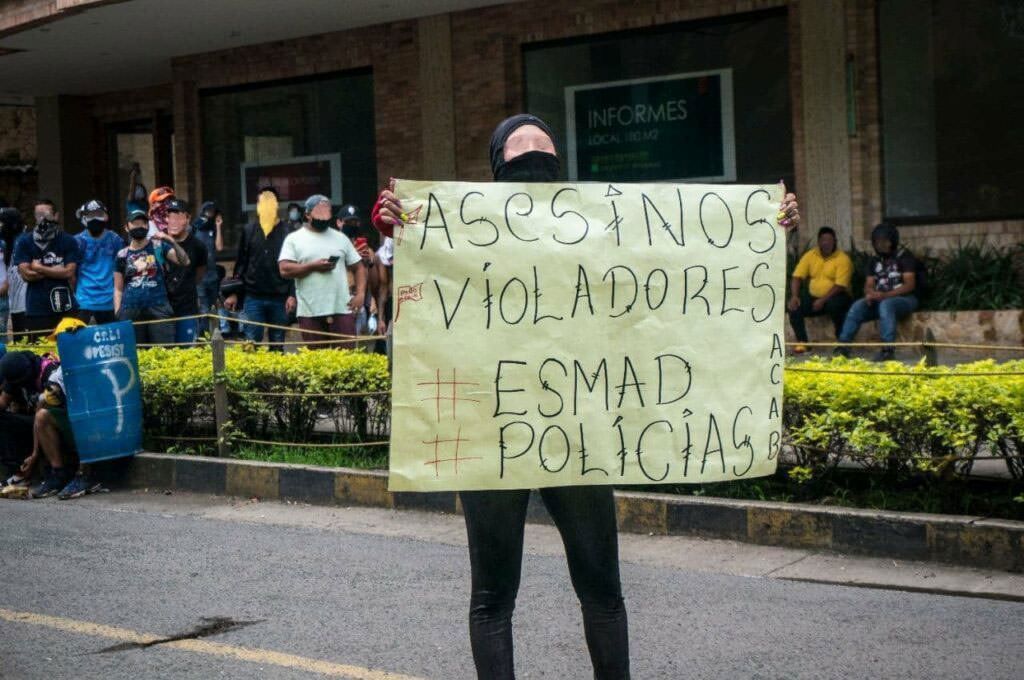 INFORMES
LOCAL 180 M2
ASESINOS
VIOLADORES
# ESMAD
# POLICÍAS
ACAB
CALI
RESIST
P